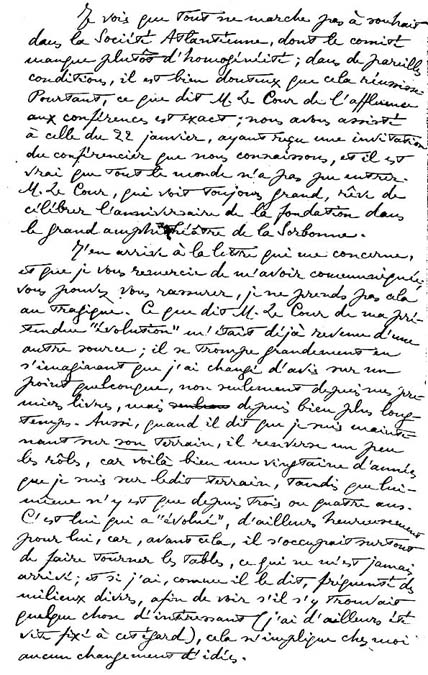 Je vois que tout ne marche pas à souhait
dans la Société Atlantéenne, dont le comité
manque plutôt d'homogénéité ; dans de pareilles
conditions, il est bien douteux que cela réussisse.
Pourtant, ce que dit M. Le Cour de l'affluence
aux conférences est exact ; nous avons assisté
à celle du 22 janvier, ayant reçu une invitation
du conférencier que nous connaissons, et il est
vrai que tout le monde n'a pas pu entrer.
M. Le Cour, qui voit toujours grand, rêve de
célébrer l'anniversaire de la fondation dans
le grand amphithéâtre de la Sorbonne.
J'en arrive à la lettre qui me concerne,
et que je vous remercie de m'avoir communiquée ;
vous pouvez vous rassurer, je ne prends pas cela
au tragique. Ce que dit M. Le Cour de ma pré-
tendue "évolution" m'était déjà revenu d'une
autre source ; il se trompe grandement en
s'imaginant que j'ai changé d'avis sur un
point quelconque, non seulement depuis mes pre-
miers livres, mais depuis bien plus long-
temps. Aussi, quand il dit que je suis mainte-
nant sur son terrain, il renverse un peu
les rôles, car voilà bien une vingtaine d'années
que je suis sur ledit terrain, tandis que lui-
même n'y est que depuis trois ou quatre ans.
C'est lui qui a "évolué", d'ailleurs heureusement
pour lui, car, avant cela, il s'occupait surtout
de faire tourner les tables, ce qui ne m'est jamais
arrivé ; et si j'ai, comme il le dit, fréquenté des
milieux divers, afin de voir s'il s'y trouvait
quelque chose d'intéressant (j'ai d'ailleurs été
vite fixé à cet égard), cela n'implique chez moi
aucun changement d'idées.